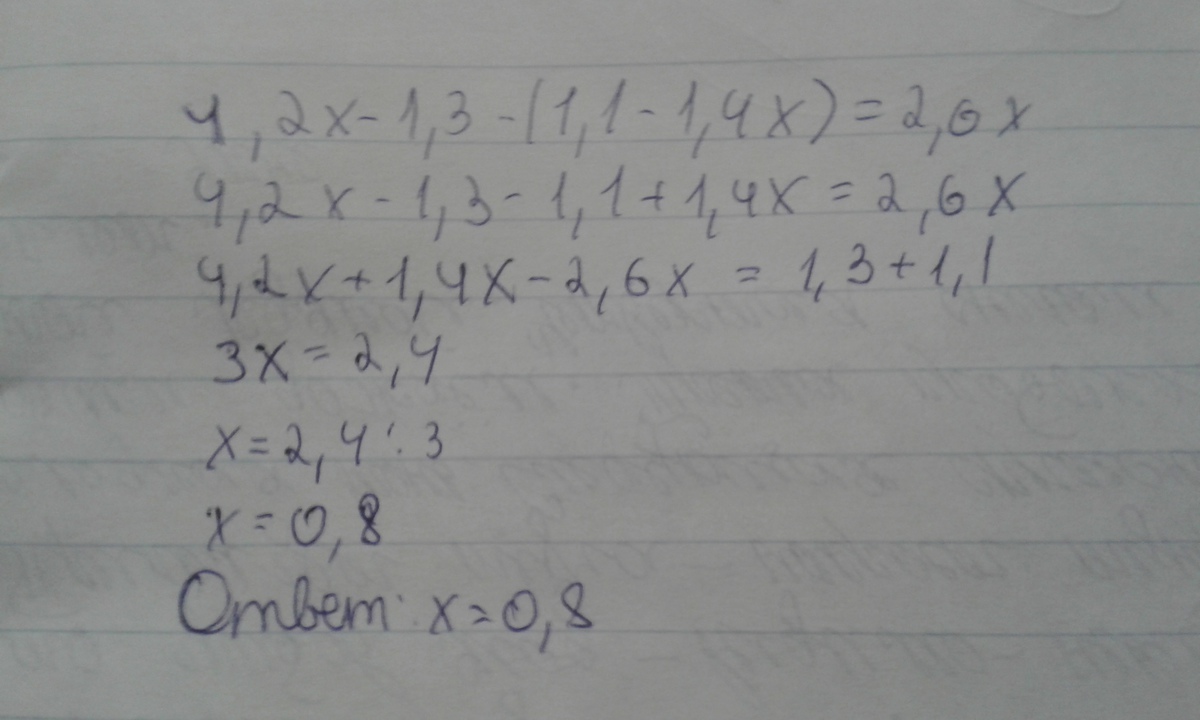 4,2x-1,3-(1,1-1,4x)=2,6x
4,2x-1,3-1,1+1,4x=2,6x
4,2x+1,4x-2,6x=1,3+1,1
3x=2,4
x=2,4:3
x=0,8
Ответ: x=0,8